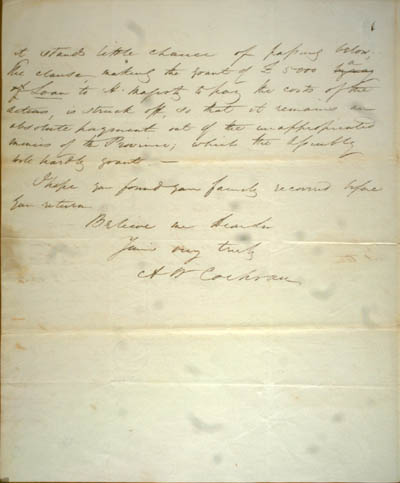 it stands little chance of passing below;
the clause making the grant of £ 5000 by way
of Loan to H. Majesty to pay the costs of the
actions, is struck off, so that it remains an
absolute payment out of the unappropriated
monies of the Province; which the Assembly
will hardly grant —
I hope you found your family recovered before
your return
Believe me Dear Sir
Yours very truly
A W Cochran